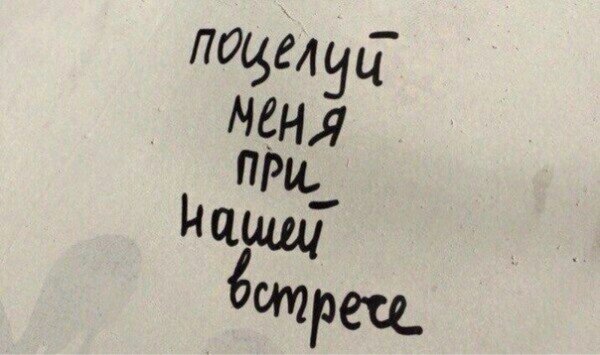 поцелуй
меня
при
нашей
встрече